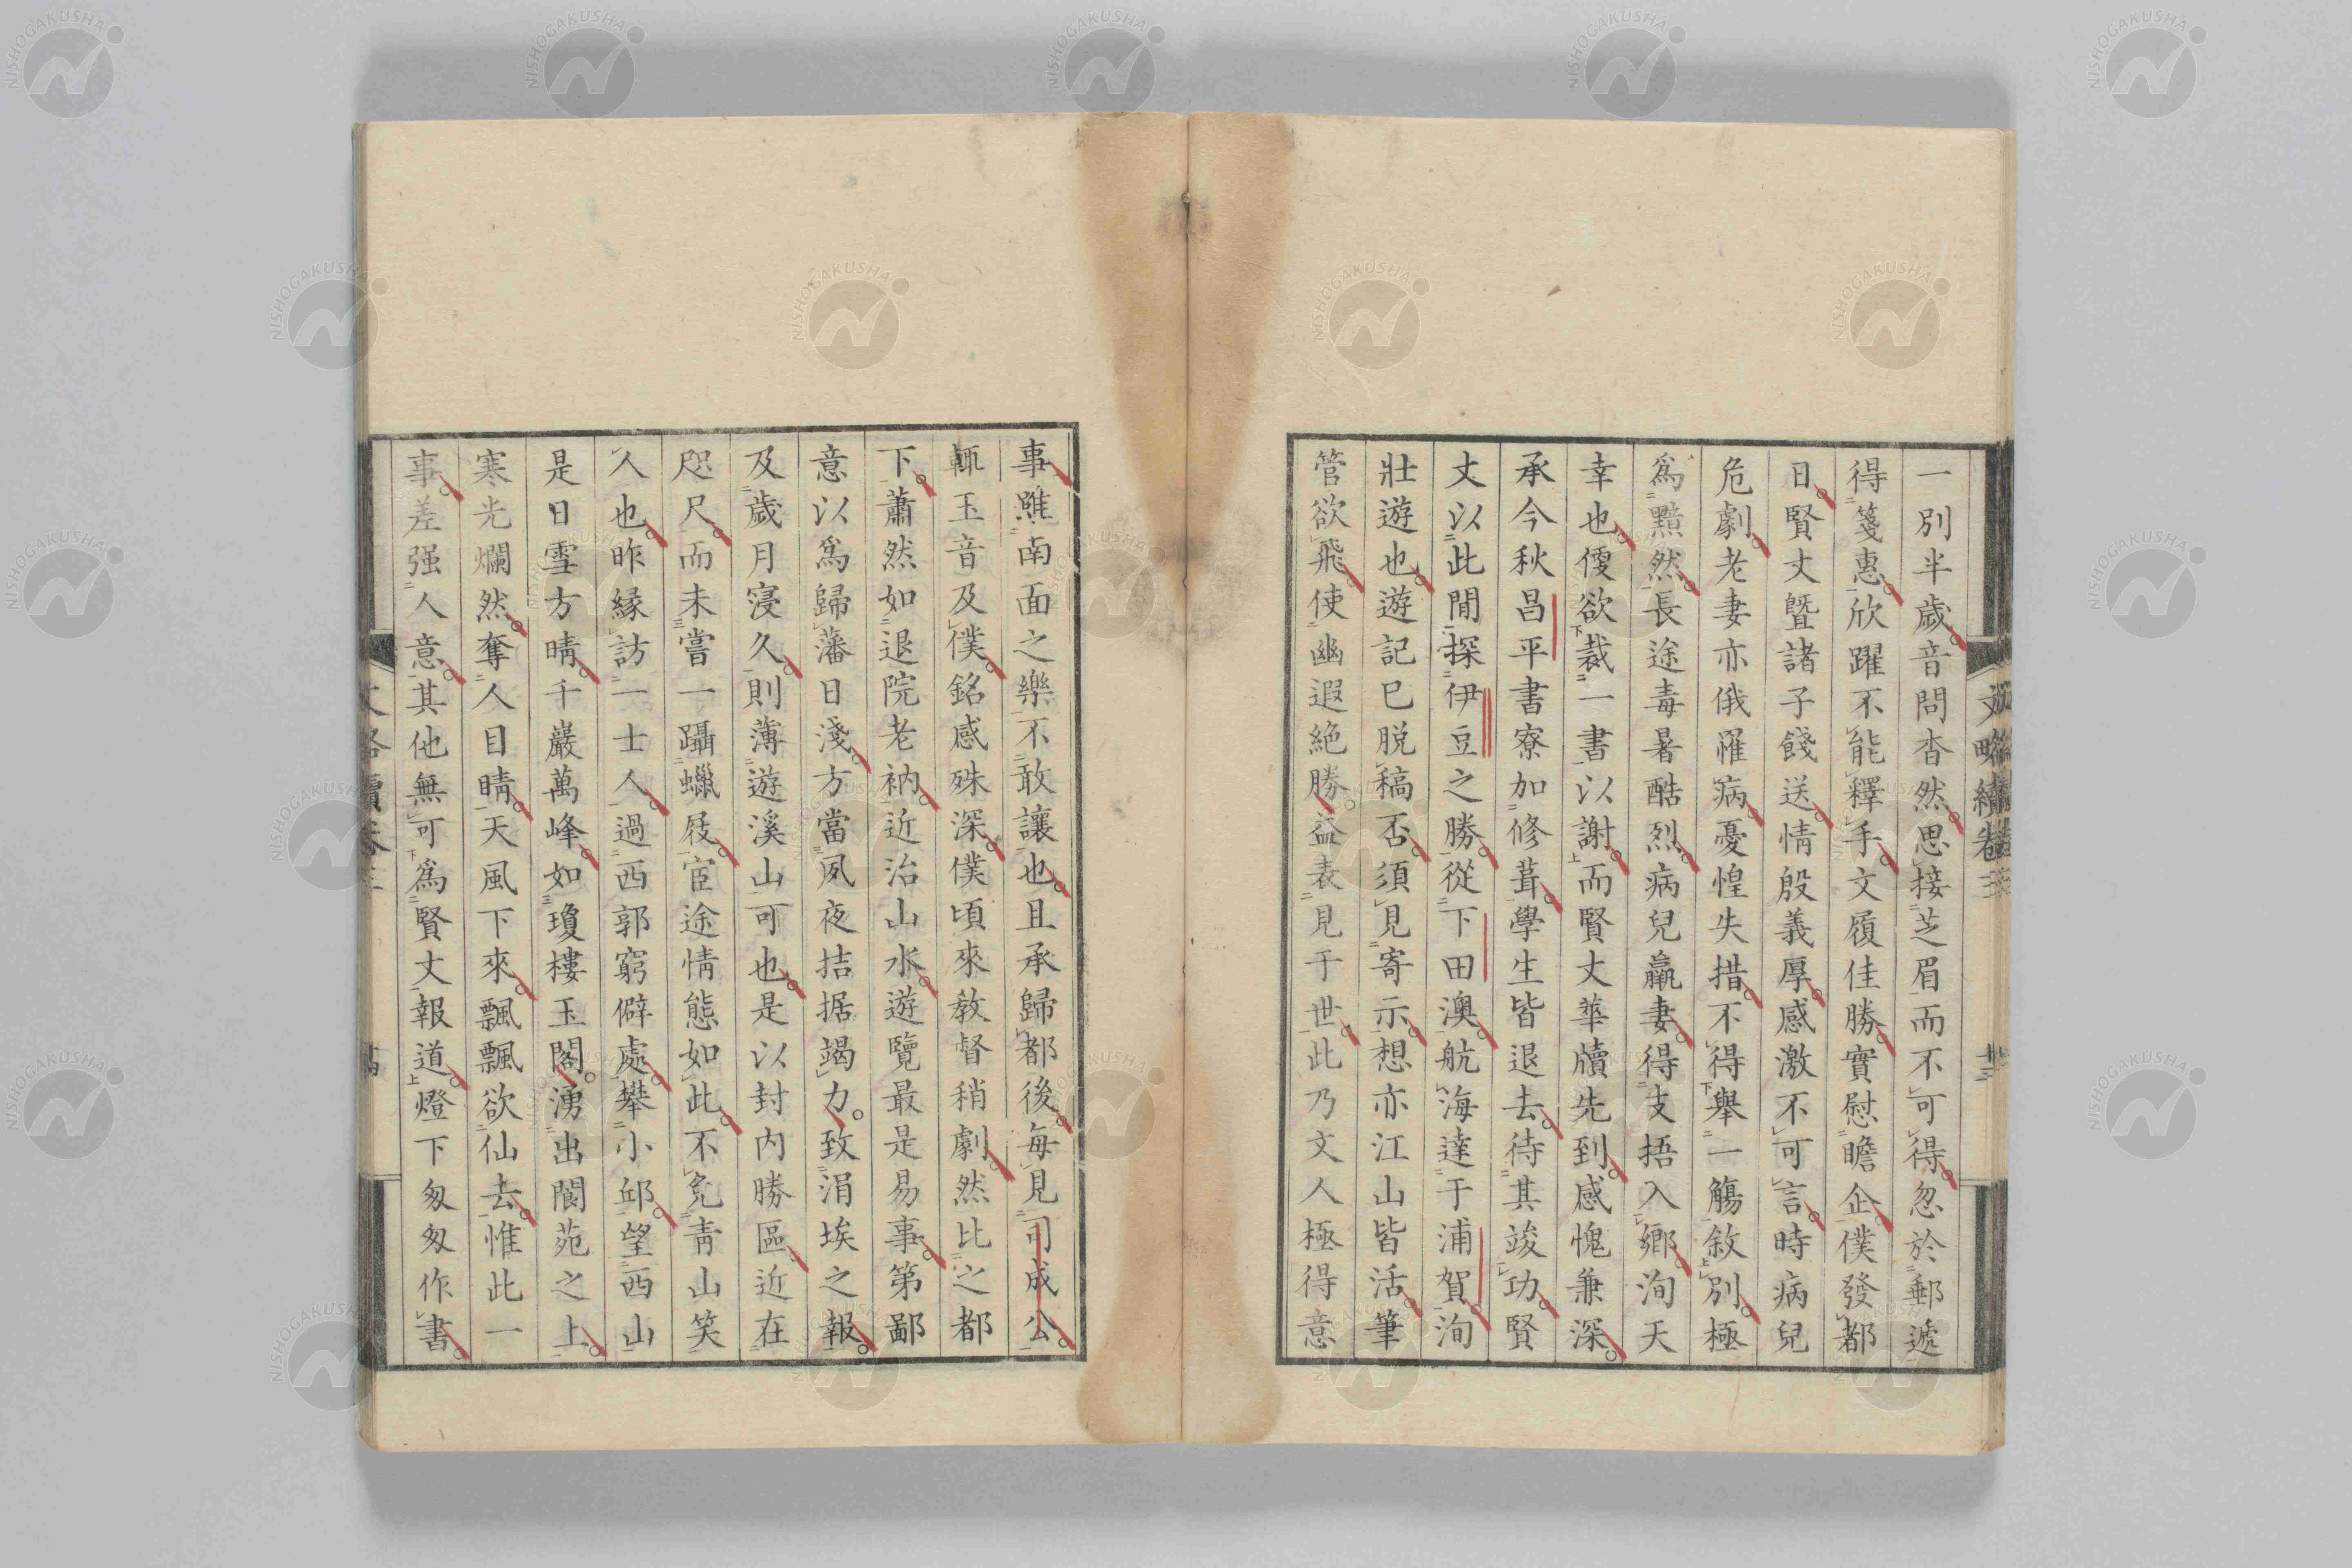 一別半歲音問杳然思接芝眉而不可得忽於郵遞
得箋惠欣躍不能釋手文履佳勝實慰瞻企僕發都
日賢丈曁諸子餞送情殷義厚感激不可言時病兒
危劇老妻亦俄罹病憂惶失措不得舉一觴敘別極
爲黯然長途毒暑酷烈病兒羸妻得支捂入鄉洵天
幸也僾欲裁一書以謝而賢丈華牘先到感愧兼深
承今秋昌平書寮加修葺學生皆退去待其竣功賢
丈以此閒探伊豆之勝從下田澳航海達于浦賀洵
壯遊也遊記已脫稿否須見寄示想亦江山皆活筆
管欲飛使幽遐絕勝益表見于世此乃文人極得意
事雖南面之樂不敢讓也且承歸都後每見司成公
輒玉音及僕銘感殊深僕頃來教督稍劇然比之都
下蕭然如退院老衲近治山水遊覽最是易事第鄙
意以爲歸藩日淺方當夙夜拮据竭力致涓埃之報
及歲月寖久則薄遊溪山可也是以封内勝區近在
咫尺而未嘗一躡蠟屐宦途情態如此不免靑山笑
人也昨緣訪一士人過西郭窮僻處攀小邱望西山
是日雪方晴千巖萬峰如瓊樓玉閣湧出閬苑之上
寒光爛然奪人目睛天風下來飄飄欲仙去惟此一
事差强人意其他無可爲賢丈報道燈下匆匆作書
文略續卷三
NISHOGAKUSHA